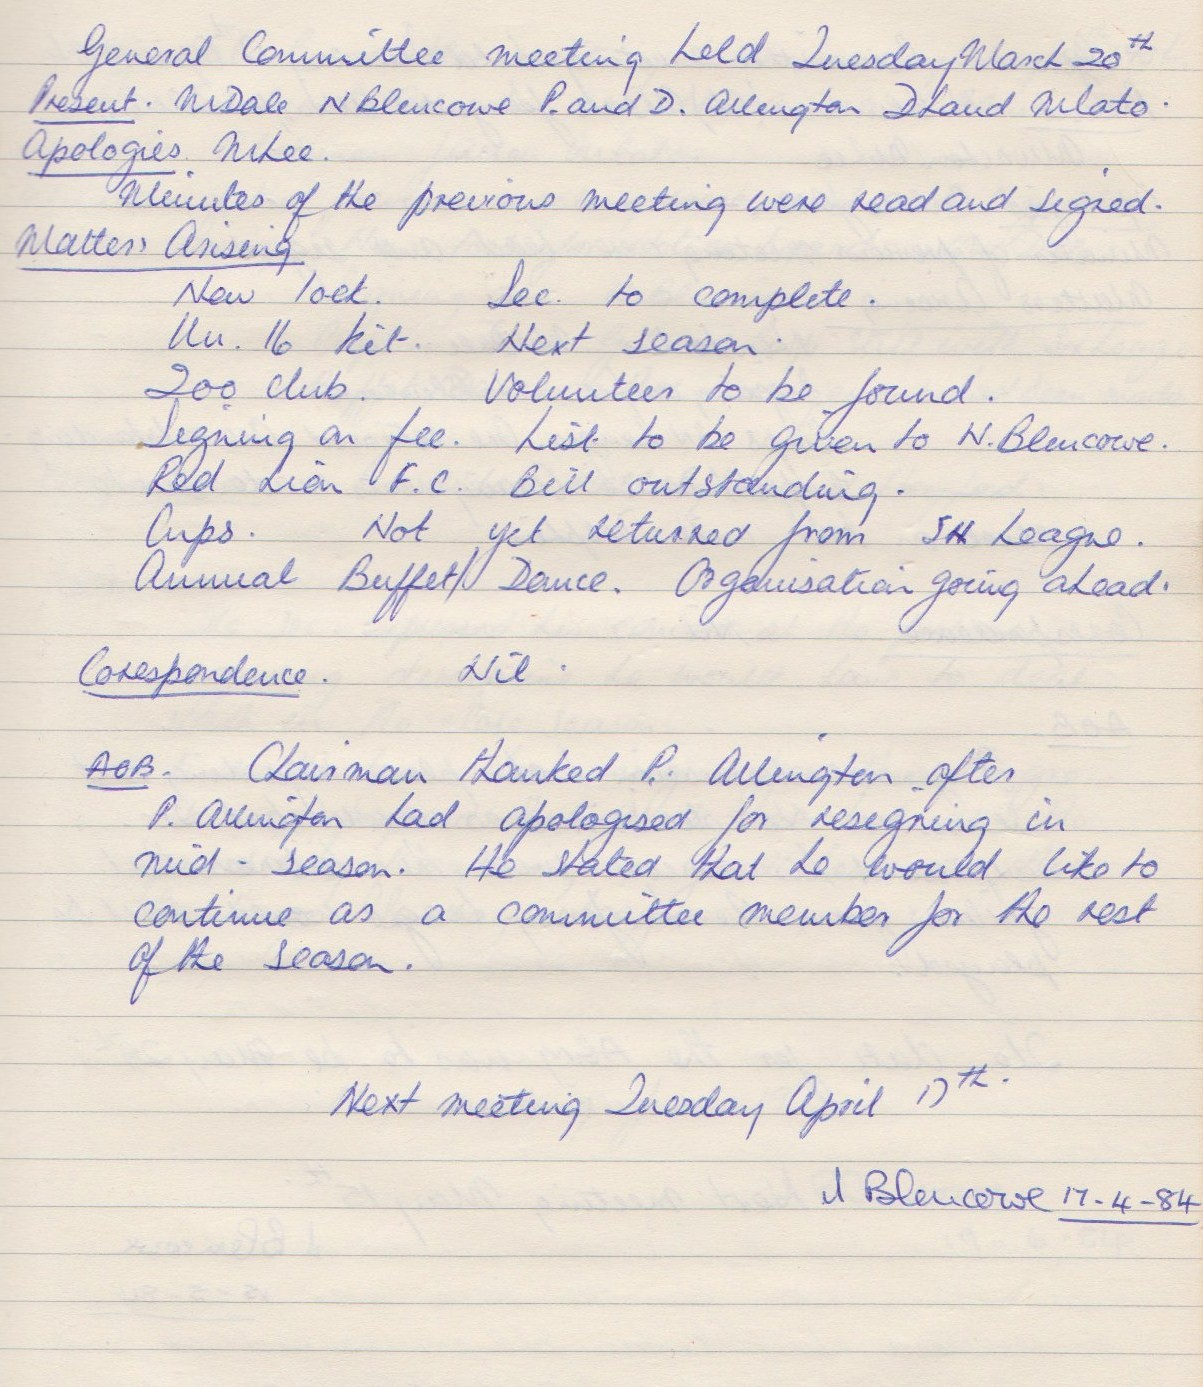 General Committee meeting held Tuesday March 20th
Present. M Dale N Blencowe P. and D. Allington D Land M Lato.
Apologies. M Lee.
Minutes of the previous meeting were read and signed.
Matters Arising
New lock. Sec. to complete.
Un. 16 kit. Next season.
200 club. Volunteer to be found.
Signing on fee. List to be given to N. Blencowe.
Red Lion F.C. Bill outstanding.
Cups. Not yet returned from SH League.
Annual Buffet/Dance. Organisation going ahead.
Corespondence. Nil.
AOB. Chairman thanked P. Allington after
P. Allington had apologised for resigning in
mid-season. He stated that he would like to
continue as a committee member for the rest
of the season.
Next meeting Tuesday April 17th.
N Blencowe 17-4-84